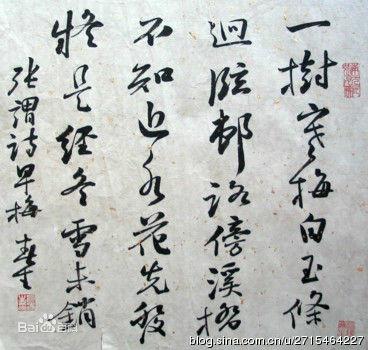 一樹寒梅白玉條
迥臨邨路傍溪橋
不知近水花先發
疑是經冬雪未銷
張謂詩早梅
Baidu百科
blog.sina.com.cn/u/2715464227